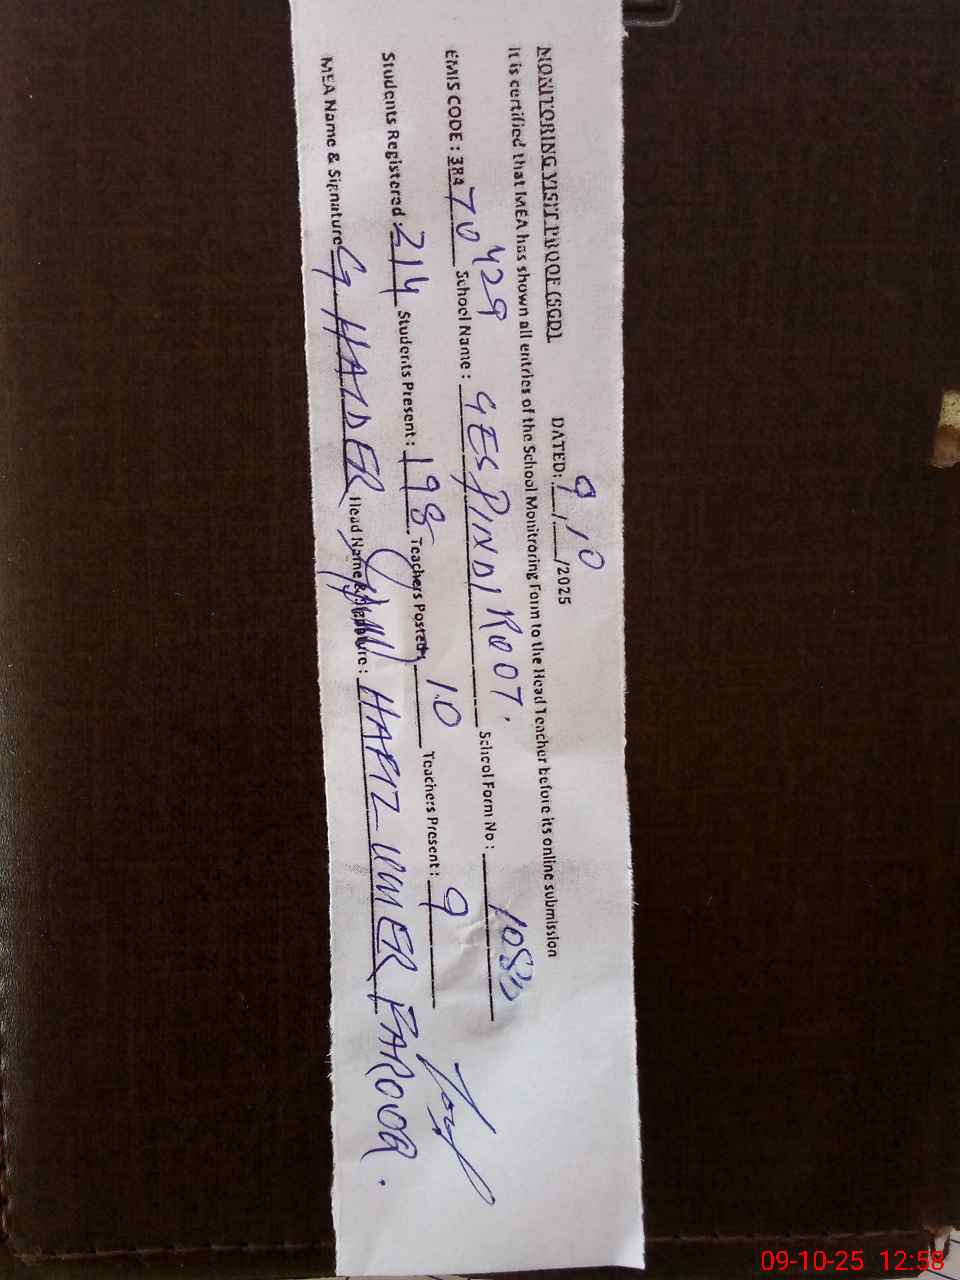 MONITORING VISIT PROOF (SGD) DATED: 9/10/2025
It is certified that MEA has shown all entries of the School Monitroring Form to the Head Teacher before its online submission
EMIS CODE : 38470429 School Name : GES PINDI KOOT. School Form No :
Students Registered : 214 Students Present : 198 Teachers Posted: 10 Teachers Present : 9
MEA Name & Signature G. HAIDER Head Name & Signature : HAFIZ UMER FAROOQ.
09-10-25 12:58